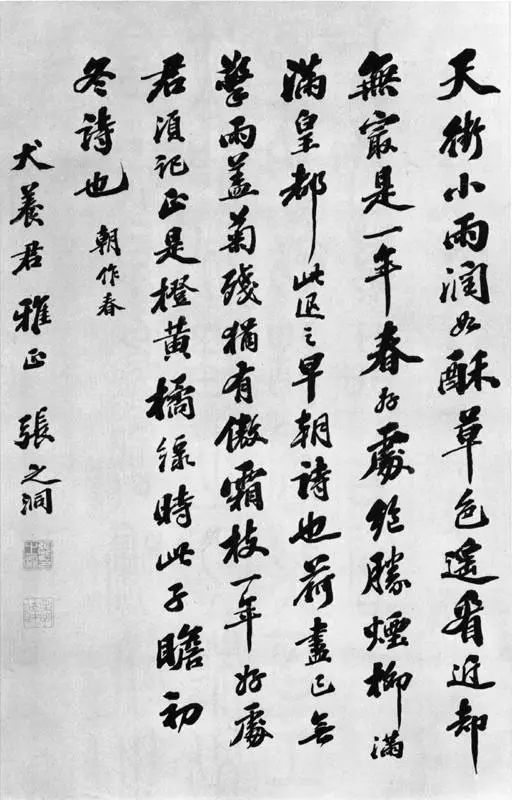 天街小雨潤如酥草色遙看近却
無冣是一年春好處絶勝煙柳滿
滿皇都此退之早朝詩也荷盡已無
擎雨盖菊殘猶有傲霜枝一年好處
君須記正是橙黃橘緑時此子瞻初
冬詩也 朝作春
犬養君雅正 張之洞